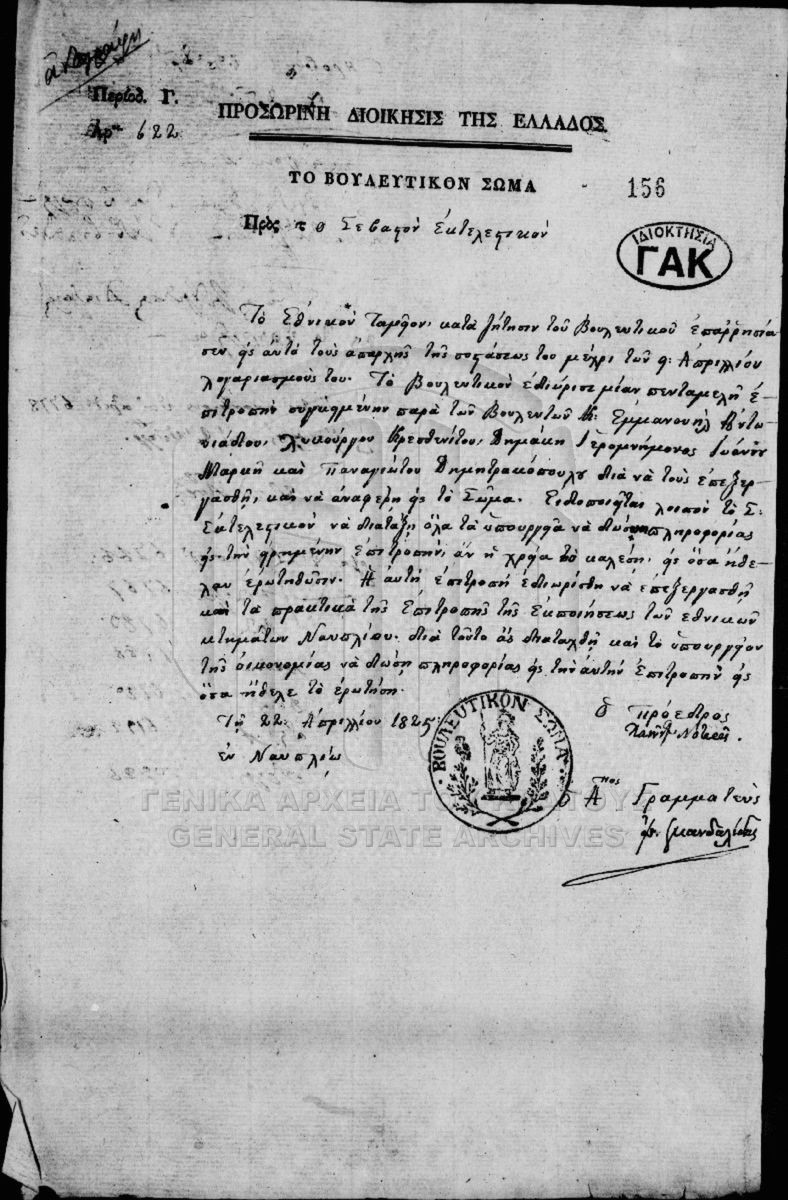 ἀντιγράφη
Περίοδ. Γ.
Ἀρ. 622
ΠΡΟΣΩΡΙΝΗ ΔΙΟΙΚΗΣΙΣ ΤΗΣ ΕΛΛΑΔΟΣ
ΤΟ ΒΟΥΛΕΥΤΙΚΟΝ ΣΩΜΑ
156
Πρὸς τὸ Σεβαστὸν Ἐκτελεστικόν
ΙΔΙΟΚΤΗΣΙΑ
ΓΑΚ
Τὸ Ἐθνικὸν Ταμεῖον, κατὰ ζήτησιν τοῦ Βουλευτικοῦ ἐπαῤῥησία
σεν εἰς αὐτὸ τοὺς ἀπαρχῆς τῆς συστάσεώς του μέχρι τῶν 9: Ἀπριλλίου
λογαριασμούς του. Τὸ Βουλευτικὸν ἐδιώρισε μίαν πενταμελῆ ἐ-
πιτροπὴν συγκειμένην παρὰ τῶν Βουλευτῶν Κ: Ἐμμανουὴλ Ἀντω-
νιάδου, Λυκούργου Κρεσθενίτου, Δημάκη Ἱερομνήμονος Ἰωάννου
Μαρκῆ καὶ Παναγιώτου Δημητρακόπουλου διὰ νὰ τοὺς ἐπεξερ-
γασθῇ, καὶ νὰ ἀναφέρῃ εἰς τὸ Σῶμα. Εἰδοποιεῖται λοιπὸν τὸ Σ:
Ἐκτελεστικὸν νὰ διατάξῃ ὅλα τὰ ὑπουργεῖα νὰ δώσουν πληροφορίας
εἰς τὴν εἰρημένην ἐπιτροπήν, ἂν ἡ χρεία τὸ καλέσῃ, εἰς ὅσα ἤθε-
λαν ἐρωτηθῶσιν. Ἡ αὐτὴ ἐπιτροπὴ ἐδιωρίσθη νὰ ἐπεξεργασθῇ
καὶ τὰ πρακτικὰ τῆς Ἐπιτροπῆς τῆς ἐκποιήσεως τῶν ἐθνικῶν
κτημάτων Ναυπλίου. διὰ τοῦτο ἂς διαταχθῇ καὶ τὸ ὑπουργεῖον
τῆς οἰκονομίας νὰ δώσῃ πληροφορίας εἰς τὴν αὐτὴν ἐπιτροπὴν εἰς
ὅσα ἤθελε τὸ ἐρωτήσῃ.
Τῇ 22: Ἀπριλλίου 1825:
ἐν Ναυπλίῳ
ΒΟΥΛΕΥΤΙΚΟΝ ΣΩΜΑ
ὁ Πρόεδρος
Πανοῦτζ Νοταρᾶς.
ὁ Α.τος Γραμματεὺς
ΓΕΝΙΚΑ ΑΡΧΕΙΑ ΤΟΥ ΚΡΑΤΟΥΣ
GENERAL STATE ARCHIVES